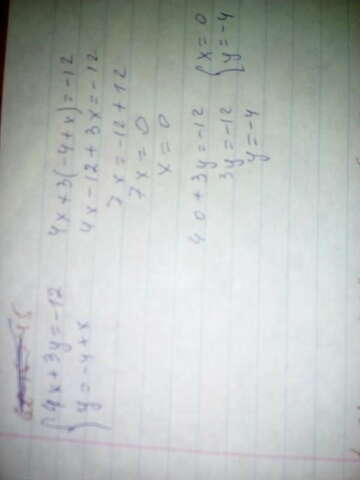 {4x+3y=-12
{y=-4+x
4x+3(-4+x)=-12
4x-12+3x=-12
7x=-12+12
7x=0
x=0
4 0+3y=-12
3y=-12
y=-4
{x=0
{y=-4